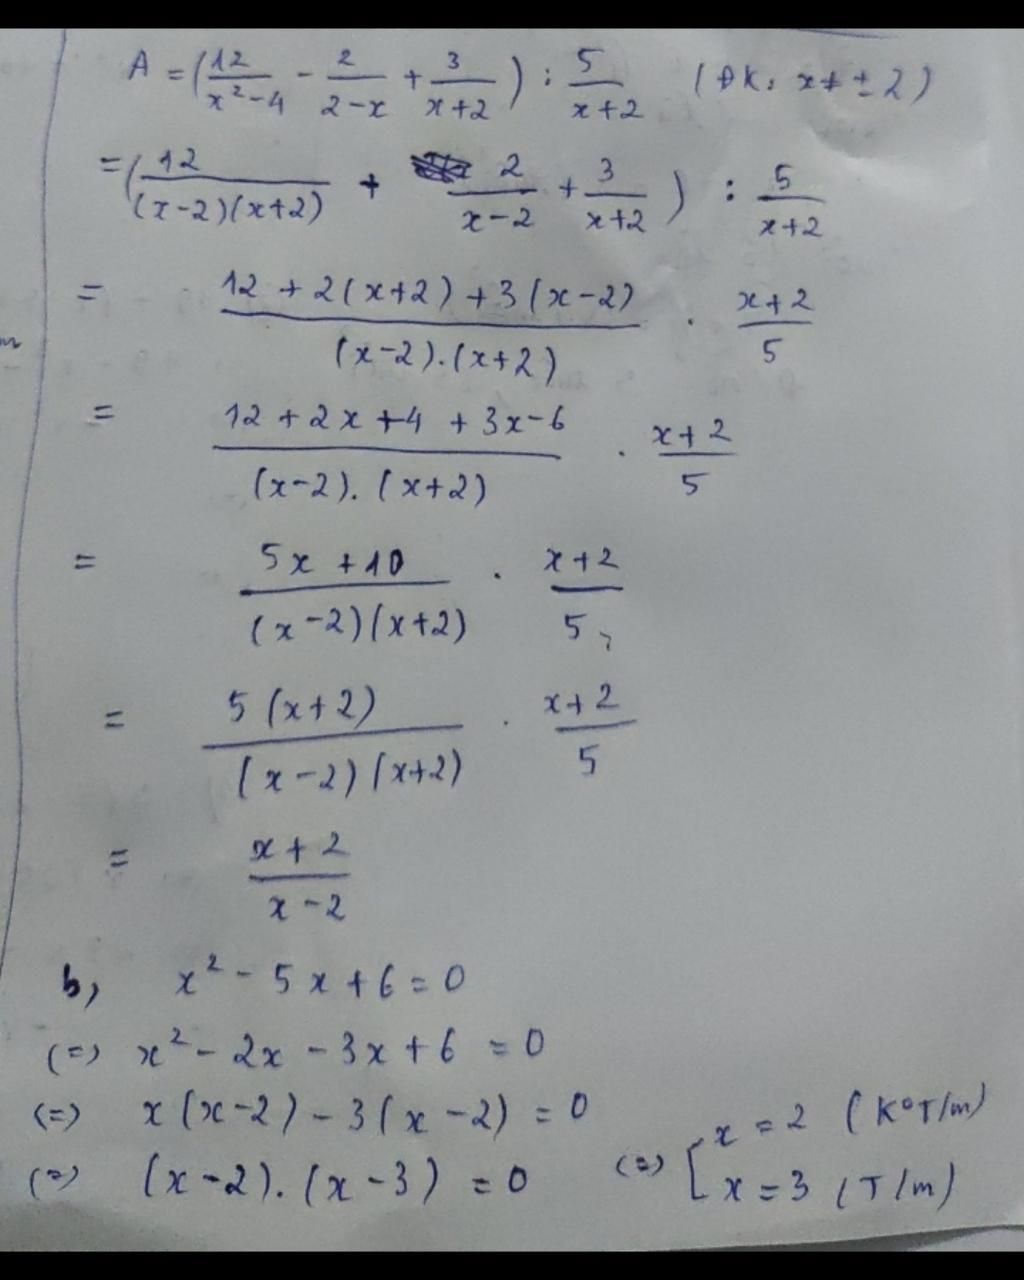 A = (12/(x²-4) - 2/(2-x) + 3/(x+2)) : 5/(x+2) (ĐK: x ≠ ±2)
= (12/((x-2)(x+2)) + 2/(x-2) + 3/(x+2)) : 5/(x+2)
= (12+2(x+2)+3(x-2))/((x-2).(x+2)) . (x+2)/5
= (12+2x+4+3x-6)/((x-2).(x+2)) . (x+2)/5
= (5x+10)/((x-2)(x+2)) . (x+2)/5
= 5(x+2)/((x-2)(x+2)) . (x+2)/5
= (x+2)/(x-2)
b, x² - 5x + 6 = 0
(=) x² - 2x - 3x + 6 = 0
(=) x(x-2) - 3(x-2) = 0
(=) (x-2).(x-3) = 0 (=) [ x = 2 (KoT/m)
x = 3 (T/m)